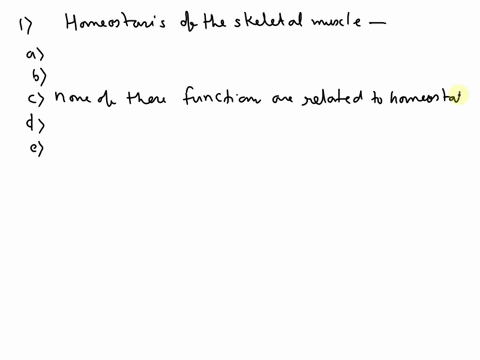 1) Homeostasis of the skeletal muscle —
a)
b)
c) none of these function are related to homeostat
d)
e)